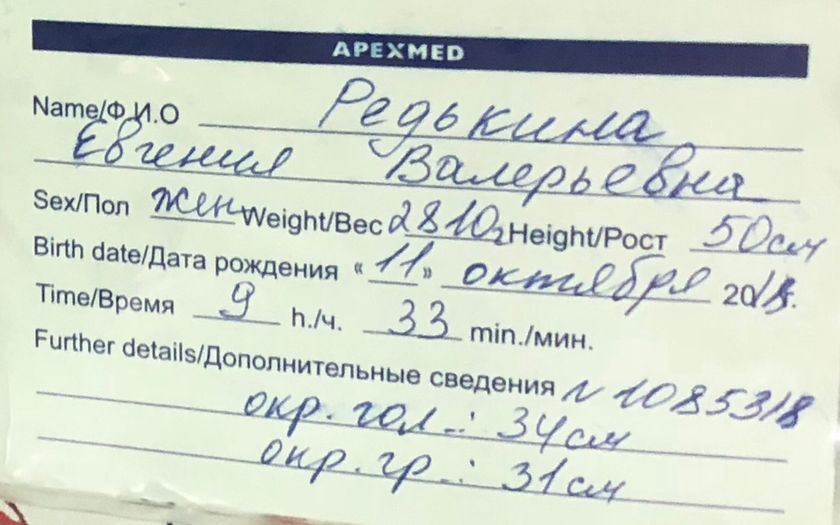 APEXMED
Name/Ф.И.О Редькина
Евгения Валерьевна
Sex/Пол жен Weight/Вес 2810г Height/Рост 50см
Birth date/Дата рождения «11» октября 2018г.
Time/Время 9 h./ч. 33 min./мин.
Further details/Дополнительные сведения N 10853/8
окр. гол.: 34см
окр. гр.: 31см